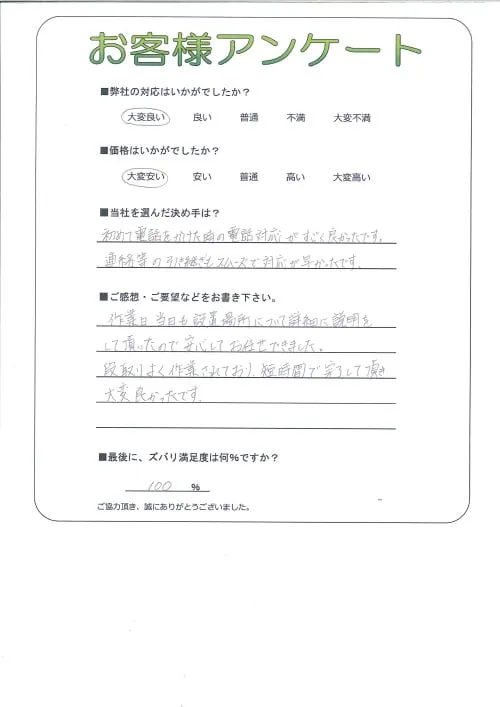 お客様アンケート
■弊社の対応はいかがでしたか？
大変良い 良い 普通 不満 大変不満
■価格はいかがでしたか？
大変安い 安い 普通 高い 大変高い
■当社を選んだ決め手は？
初めて電話をかけた時の電話対応がすごく良かったです。
連絡等の引き継ぎもスムーズで対応が早かったです。
■ご感想・ご要望などをお書き下さい。
作業日当日も設置場所について詳細に説明を
して頂いたので安心してお任せできました。
段取りよく作業されており、短時間で完了して頂き
大変良かったです。
■最後に、ズバリ満足度は何％ですか？
100 %
ご協力頂き、誠にありがとうございました。